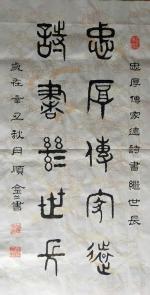 忠厚傳家遠
詩書繼世長
忠厚傳家遠詩書繼世長
歲在辛丑秋月順金書